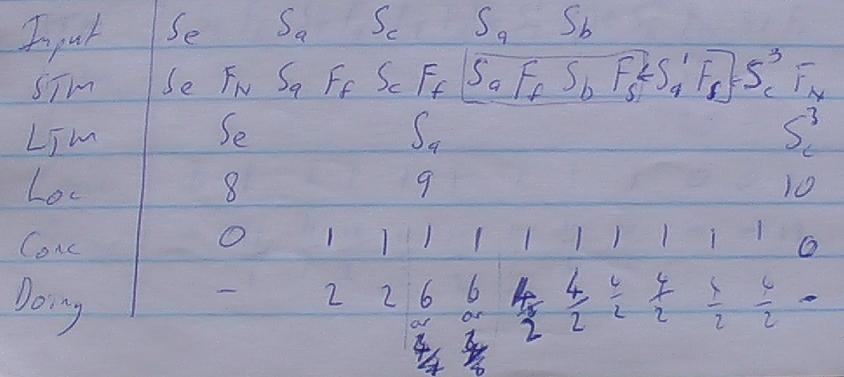 Input Se Sa Sc Sa Sb
STM Se FN Sa Ff Sc Ff Sa Ff Sb Fs Sa1 Fs Sc3 FN
LTM Se Sa Sc3
Loc 8 9 10
Conc 0 1 1 1 1 1 1 1 1 1 1 0
Doing - 2 2 6 6 4/2 4/2 4/2 4/2 4/2 4/2 -
or or